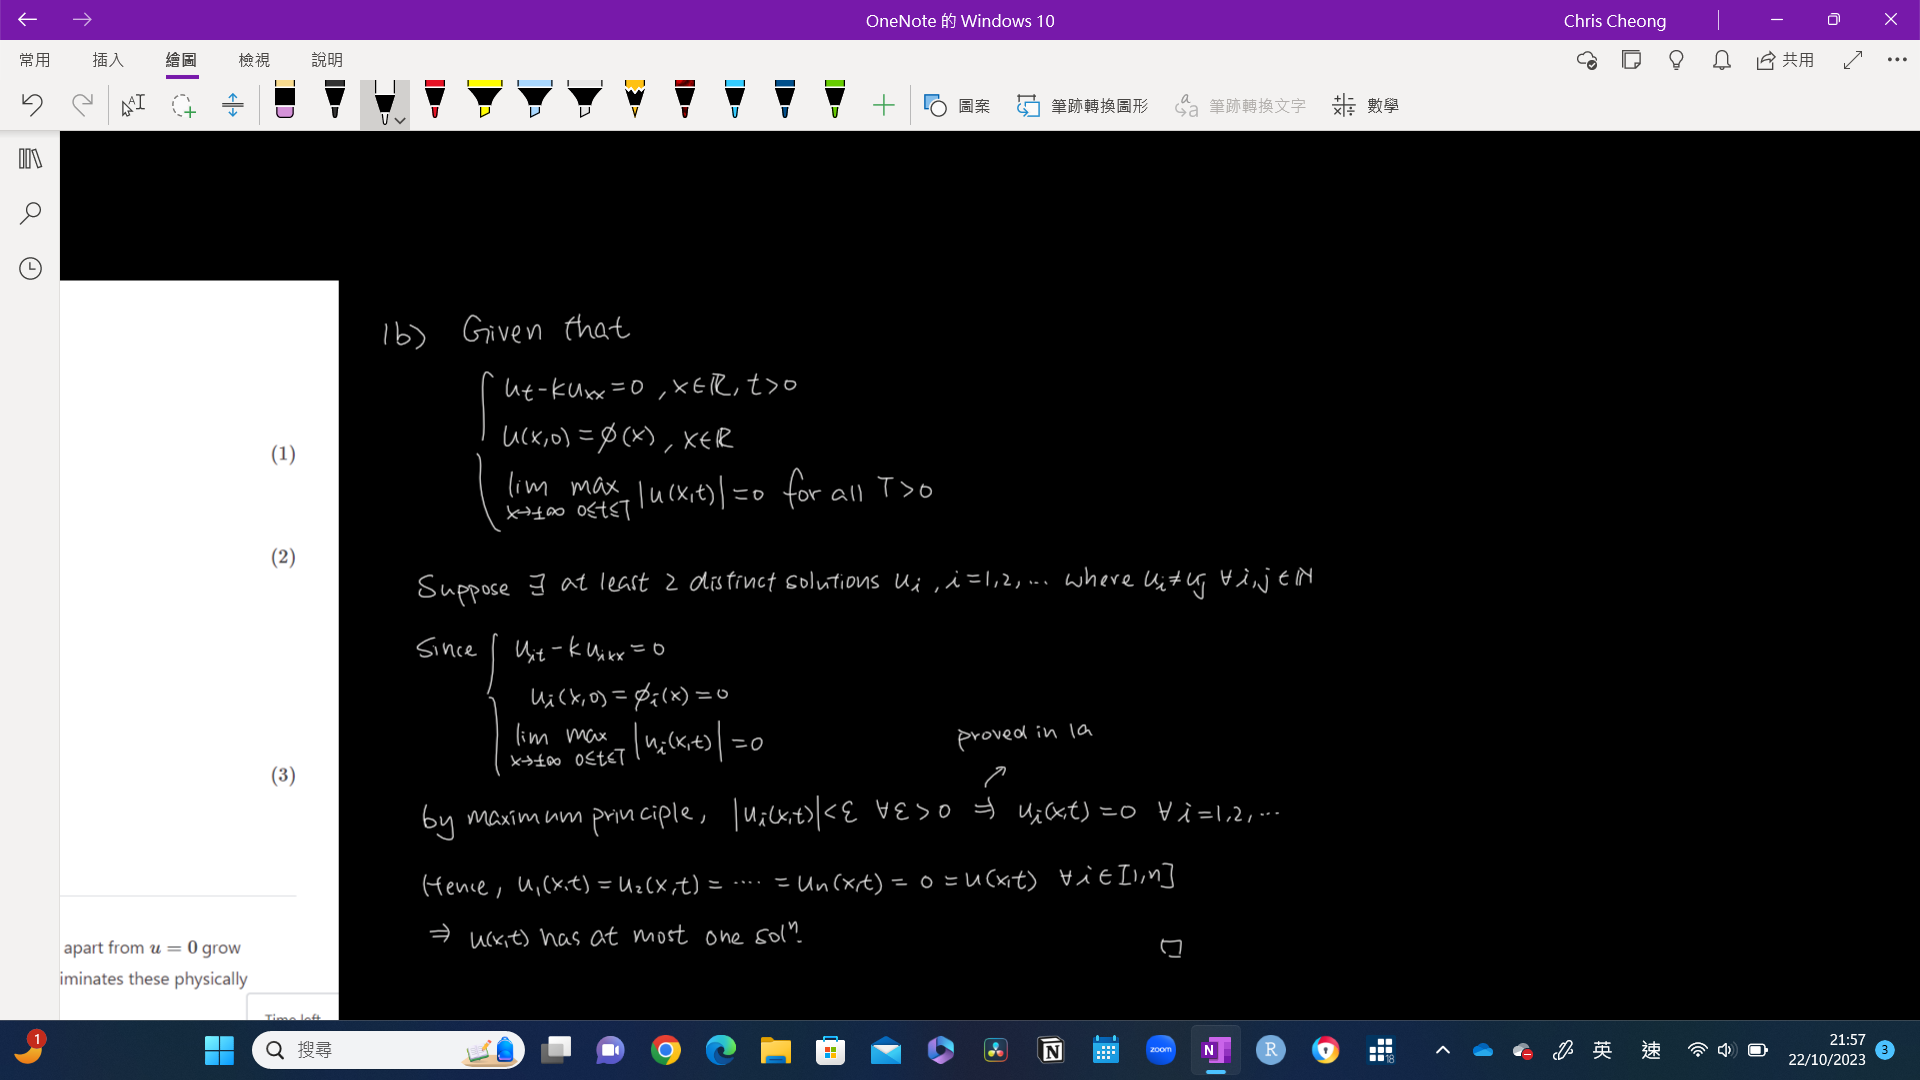 OneNote 的 Windows 10
Chris Cheong
常用 插入 繪圖 檢視 說明
共用
圖案 筆跡轉換圖形 筆跡轉換文字 數學
(1)
(2)
(3)
apart from u = 0 grow
iminates these physically
Time left
1b) Given that
u_t - k u_xx = 0 , x ∈ ℝ, t > 0
u(x,0) = ϕ(x) , x ∈ ℝ
lim_{x→±∞} max_{0≤t≤T} |u(x,t)| = 0 for all T > 0
Suppose ∃ at least 2 distinct solutions u_i , i = 1,2, ... where u_i ≠ u_j ∀ i,j ∈ ℕ
Since u_it - k u_ixx = 0
u_i(x,0) = ϕ_i(x) = 0
lim_{x→±∞} max_{0≤t≤T} |u_i(x,t)| = 0
proved in 1a
by maximum principle, |u_i(x,t)| < ε ∀ ε > 0 ⇒ u_i(x,t) = 0 ∀ i = 1,2, ...
Hence, u_1(x,t) = u_2(x,t) = .... = u_n(x,t) = 0 = u(x,t) ∀ i ∈ [1,n]
⇒ u(x,t) has at most one solⁿ.
□
1
搜尋
zoom
N
R
18
英 速
21:57
22/10/2023
3